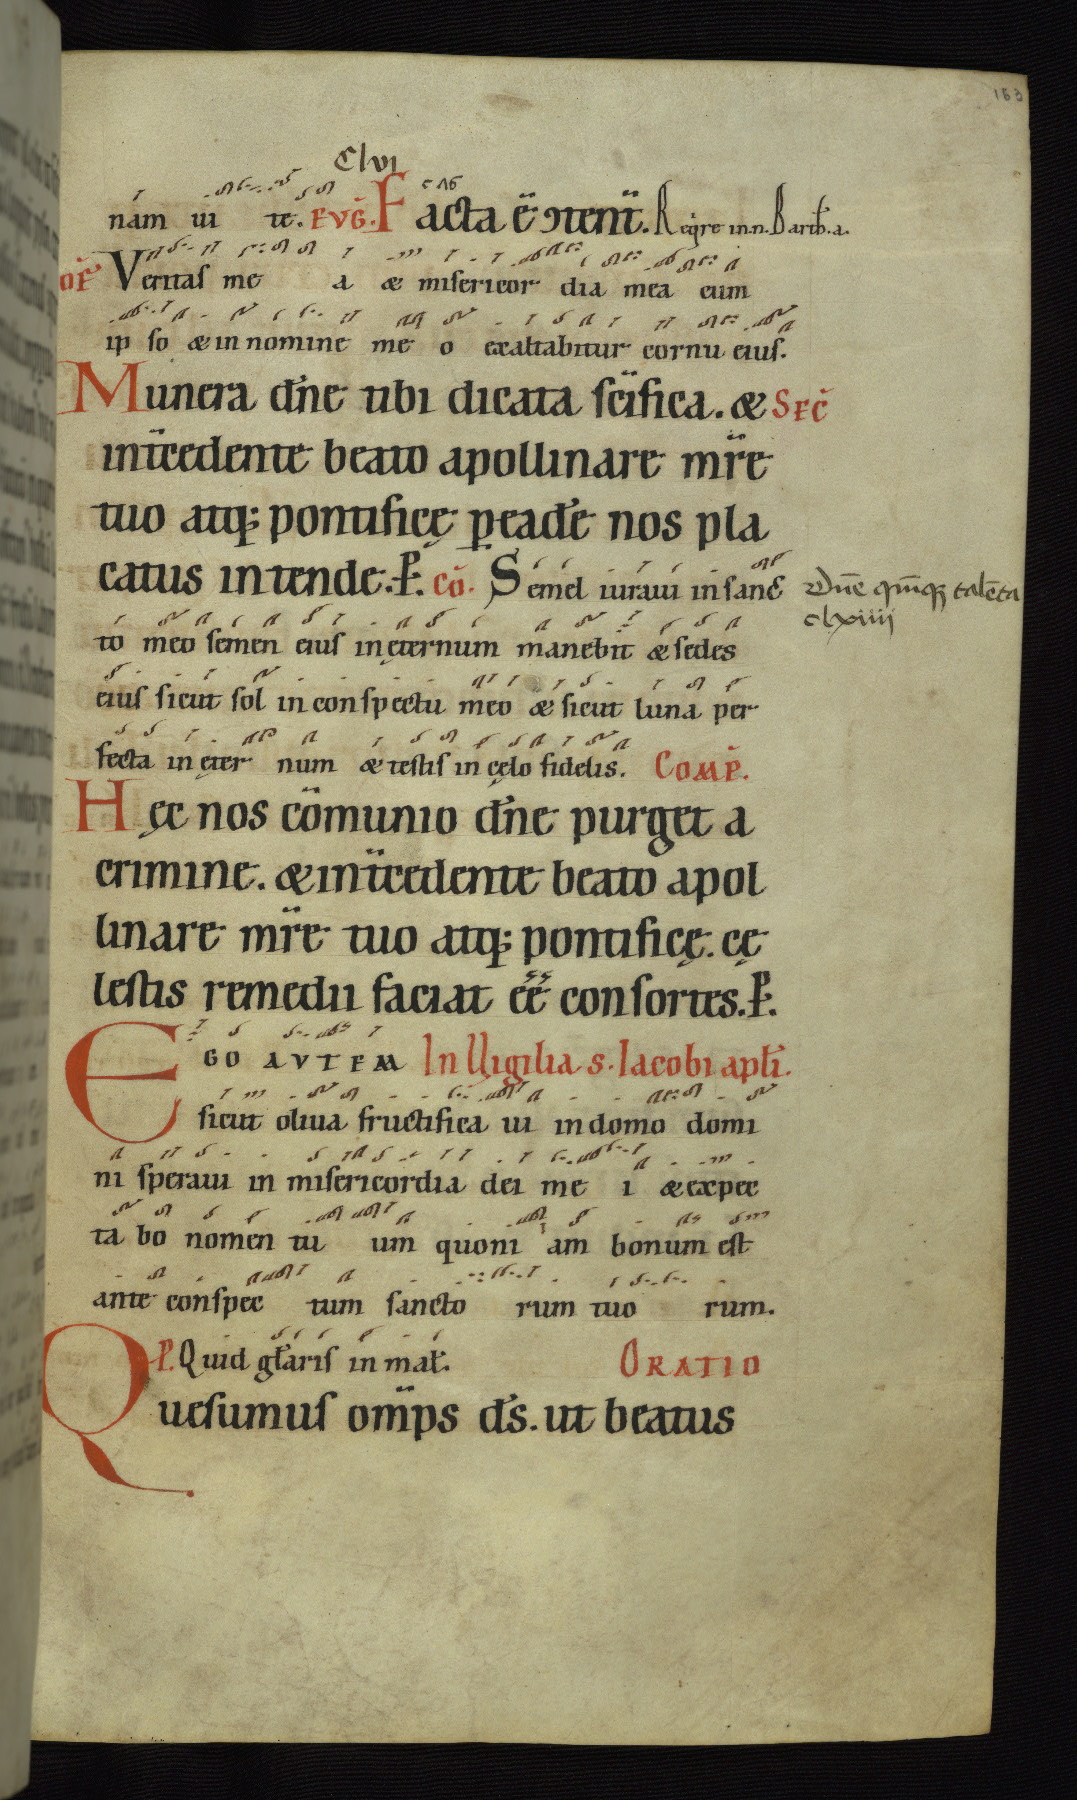 163
Clvi
nam ui te. EVḠ. Facta ē ↄtenť. Reqͥre in.n. Bartħ.a.
OF̄ Veritas me a & misericor dia mea cum
ip so & in nomine me o exaltabitur cornu eius.
Munera dn̄e tibi dicata sc̄ifica. & SEC̄
int̄cedente beato apollinare mr̄e
tuo atq; pontificę p̱eade nos pla
catus intende. P̱. CŌ. Semel iuraui in sanc
to meo semen eius in ęternum manebit & sedes
eius sicut sol in conspectu meo & sicut luna per
fecta in ęter num & testis in cęlo fidelis. COMP̄.
Hęc nos cōmunio dn̄e purget a
crimine. & int̄cedente beato apol
linare mr̄e tuo atq; pontificę. cę
lestis remedii faciat ēē consortes. P̱.
Dn̄e quinq; talēta
clxiiii
EGO AVTEM In Uigilia s. Iacobi apłi.
sicut oliua fructifica ui in domo domi
ni speraui in misericordia dei me i & expec
ta bo nomen tu um quoni am bonum est
ante conspec tum sancto rum tuo rum.
P̱. Quid głaris in mał. ORATIO
Quesumus om̄ps ds̄. ut beatus